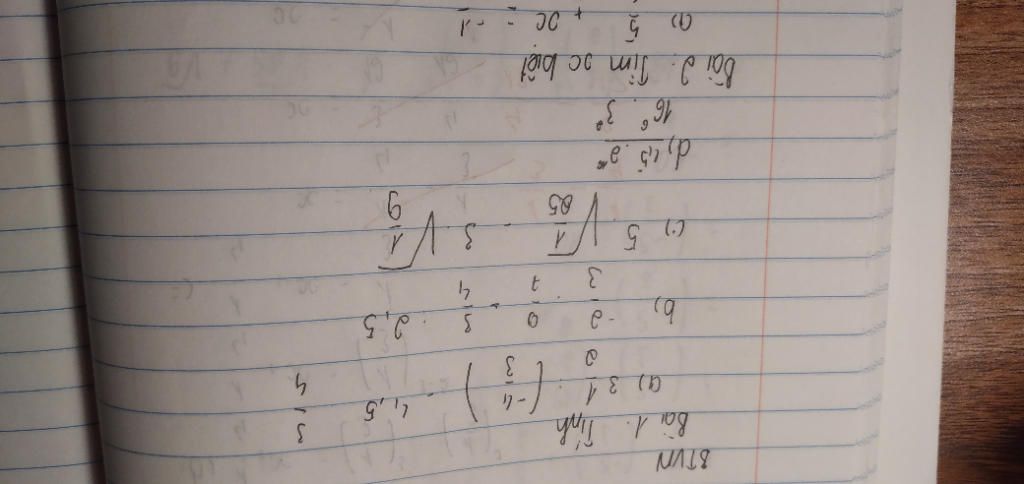 BTVN
Bài 1. Tính
a) 3 1/2 . (-4/3) - 4,5 3/4
b) -2/3 . 0/7 - 3/4 . 2,5
c) 5 √1/25 - 3 . √1/9
d) 4,5 . 2 / 16^6 . 3^2
Bài 2. Tìm x biết
a) 5 + x = -1